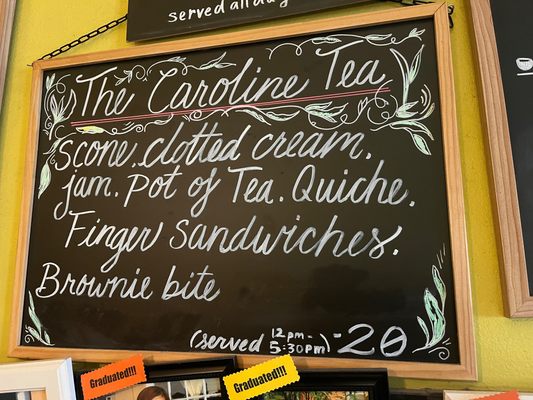 served all day
The Caroline Tea
scone. clotted cream.
jam. Pot of Tea. Quiche.
Finger Sandwiches.
Brownie bite
(served 12pm-5:30pm) -20
Graduated!!!
Graduated!!!